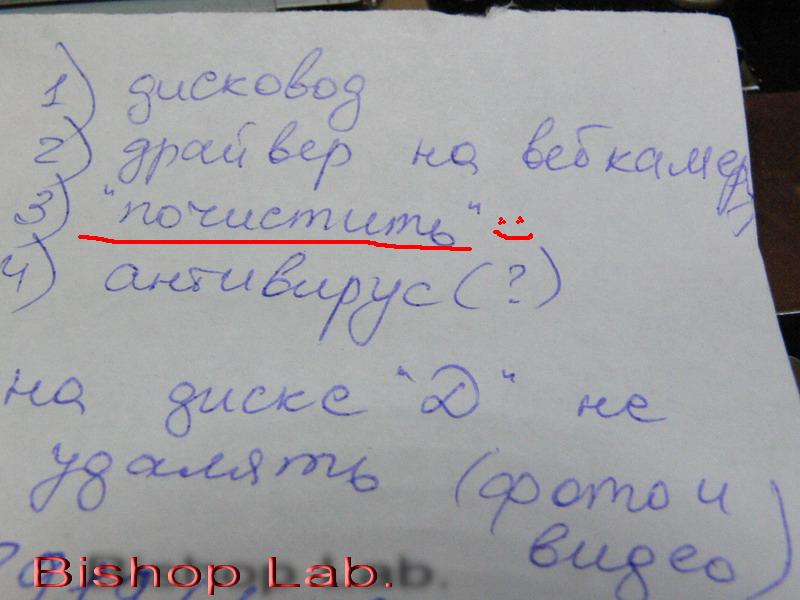 1) дисковод
2) драйвер на веб камеру
3) "почистить"
4) антивирус (?)
на диске "D" не
удалять (фото и
видео)
Bishop Lab.